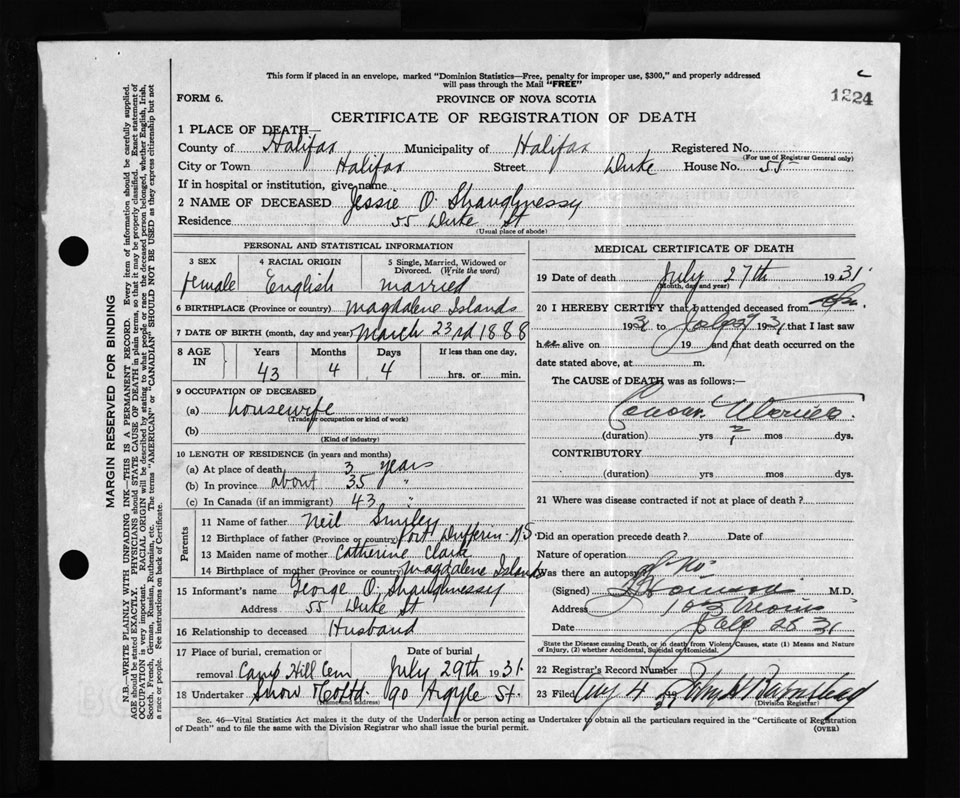 This form if placed in an envelope, marked "Dominion Statistics—Free, penalty for improper use, $300," and properly addressed
will pass through the Mail "FREE"
FORM 6. PROVINCE OF NOVA SCOTIA
1224
CERTIFICATE OF REGISTRATION OF DEATH
1 PLACE OF DEATH—
County of Halifax Municipality of Halifax Registered No.
(For use of Registrar General only)
City or Town Halifax Street Duke House No. 55
If in hospital or institution, give name
2 NAME OF DECEASED Jessie O. Shaughnessy
Residence 55 Duke St
(Usual place of abode)
PERSONAL AND STATISTICAL INFORMATION
3 SEX 4 RACIAL ORIGIN 5 Single, Married, Widowed or
Divorced. (Write the word)
female English married
6 BIRTHPLACE (Province or country) Magdalene Islands
7 DATE OF BIRTH (month, day and year) March 23rd 1888
8 AGE IN Years Months Days If less than one day,
43 4 4 hrs. or min.
9 OCCUPATION OF DECEASED
(a) housewife
(Trade occupation or kind of work)
(b)
(Kind of industry)
10 LENGTH OF RESIDENCE (in years and months)
(a) At place of death 3 years
(b) In province about 35 "
(c) In Canada (if an immigrant) 43 "
Parents
11 Name of father Neil Smiley
12 Birthplace of father (Province or country) Port Dufferin N.S.
13 Maiden name of mother Catherine Clark
14 Birthplace of mother (Province or country) Magdalene Islands
15 Informant's name George O. Shaughnessy
Address 55 Duke St
16 Relationship to deceased Husband
17 Place of burial, cremation or Date of burial
removal Camp Hill Cem July 29th 1931
18 Undertaker Snow & Co Ltd. 90 Argyle St.
(Name and address)
MEDICAL CERTIFICATE OF DEATH
19 Date of death July 27th 1931
(Month, day and year)
20 I HEREBY CERTIFY that I attended deceased from
193 to 1931 that I last saw
h er alive on 19 and that death occurred on the
date stated above, at m.
The CAUSE of DEATH was as follows:—
(duration) yrs mos dys.
CONTRIBUTORY
(duration) yrs. mos. dys.
21 Where was disease contracted if not at place of death?
Did an operation precede death? Date of
Nature of operation
Was there an autopsy? No
(Signed) M.D.
Address
Date 28 31
State the Disease causing Death, or in death from Violent Causes, state (1) Means and Nature
of Injury, (2) whether Accidental, Suicidal or Homicidal.
22 Registrar's Record Number
23 Filed Aug 4 19
(Division Registrar)
Sec. 46—Vital Statistics Act makes it the duty of the Undertaker or person acting as Undertaker to obtain all the particulars required in the "Certificate of Registration
of Death" and to file the same with the Division Registrar who shall issue the burial permit. (OVER)
MARGIN RESERVED FOR BINDING
N.B.—WRITE PLAINLY WITH UNFADING INK—THIS IS A PERMANENT RECORD. Every item of information should be carefully supplied.
AGE should be stated EXACTLY. PHYSICIANS should STATE CAUSE OF DEATH in plain terms, so that it may be properly classified. Exact statement of
OCCUPATION is very important. RACIAL ORIGIN will be described by stating to what people or race the deceased person belonged, whether English, Irish,
Scotch, French, German, Russian, Ruthenian, etc. The terms "AMERICAN" or "CANADIAN" SHOULD NOT BE USED as they express citizenship but not
a race or people. See instructions on back of Certificate.